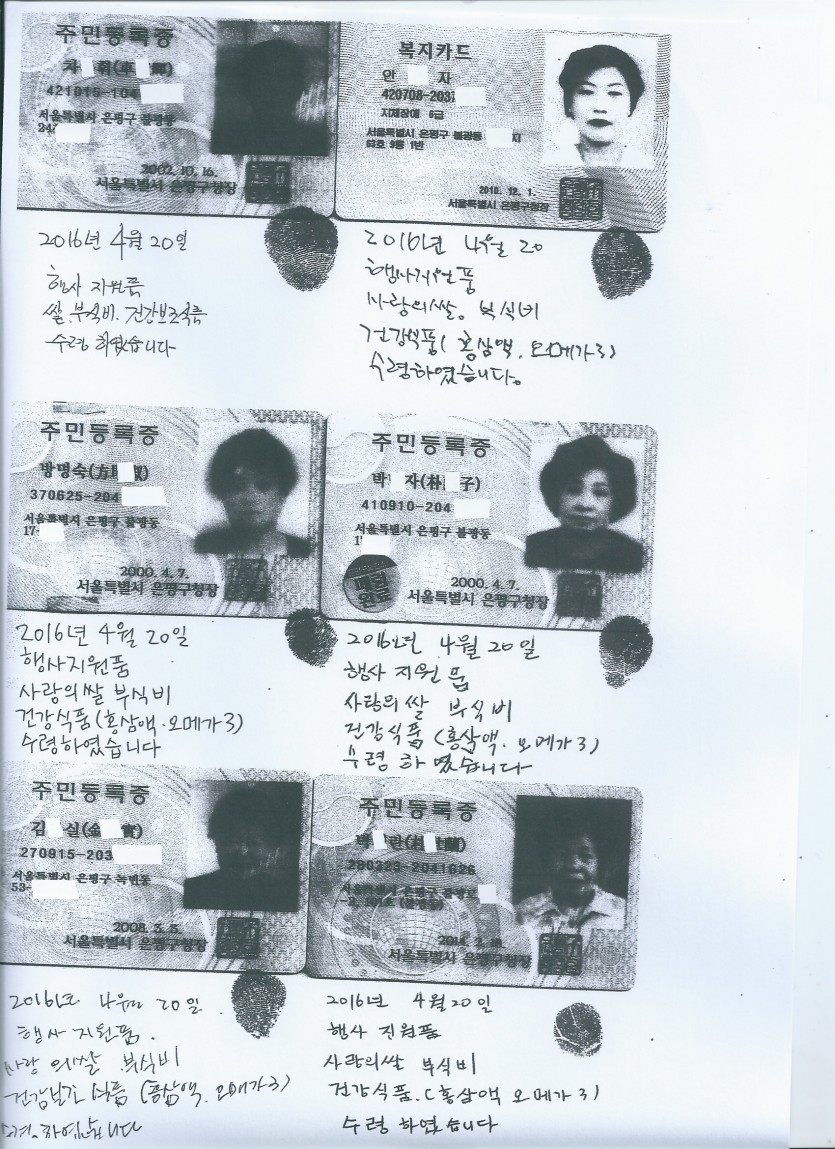 주민등록증
421015-104
서울특별시 은평구 불광동
2002.10.16.
서울특별시 은평구청장
복지카드
안 자
420708-203
지체장애 6급
서울특별시 은평구 불광동 지
63호 9통 1반
2010. 12. 1.
서울특별시 은평구청장
2016년 4월 20일
행사 지원품
쌀 부식비. 건강보조식품
수령 하였습니다
2016년 4월 20
행사지원품
사랑의쌀. 부식비
건강식품( 홍삼액. 오메가3)
수령하였습니다.
주민등록증
방명숙
370625-204
서울특별시 은평구 불광동
17-
2000.4.7.
서울특별시 은평구청장
주민등록증
박 자(朴 子)
410910-204
서울특별시 은평구 불광동
2000.4.7.
서울특별시 은평구청장
완료
2016년 4월 20일
행사지원품
사랑의쌀 부식비
건강식품(홍삼액.오메가3)
수령하였습니다
2016년 4월 20일
행사 지원품
사랑의 쌀 부식비
건강식품 (홍삼액. 오메가3)
수령 하였습니다
주민등록증
김 실(金 實)
270915-203
서울특별시 은평구 녹번동
53-
2008.3.5.
서울특별시 은평구청장
주민등록증
서울특별시 은평구
서울특별시 은평구청장
2016년 4월 20일
행사 지원품.
사랑의쌀 부식비
식품 (홍삼액. 오메가3)
2016년 4월 20일
행사 지원품
사랑의쌀 부식비
건강식품.(홍삼액 오메가3)
수령 하였습니다